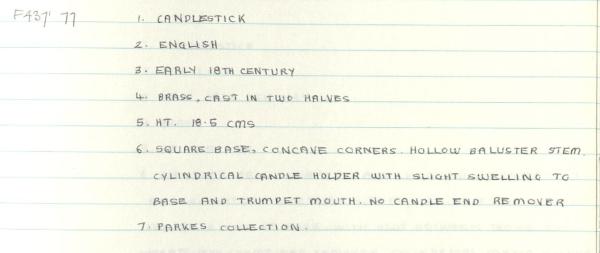 F437' 77
1. CANDLESTICK
2. ENGLISH
3. EARLY 18TH CENTURY
4. BRASS, CAST IN TWO HALVES
5. HT. 18.5 CMS
6. SQUARE BASE, CONCAVE CORNERS. HOLLOW BALUSTER STEM.
CYLINDRICAL CANDLE HOLDER WITH SLIGHT SWELLING TO
BASE AND TRUMPET MOUTH. NO CANDLE END REMOVER
7. PARKES COLLECTION.